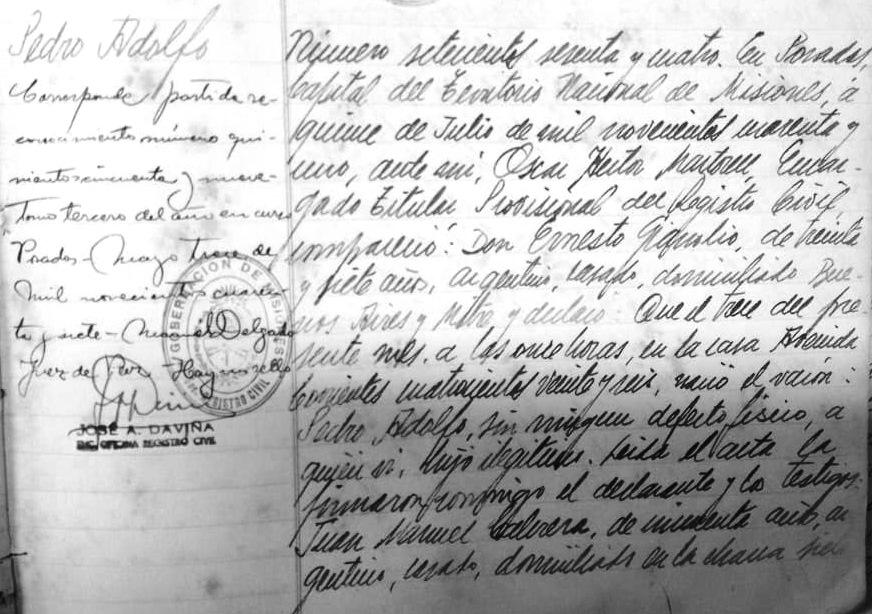 Pedro Adolfo
Corresponde partida re-
conocimiento número qui-
nientos cincuenta y nueve-
Tomo tercero del año en curso
Posadas - Mayo trece de
mil novecientos cuaren-
ta y siete - Manuel Delgado
Juez de Paz - Hay un sello
JOSÉ A. DAVIÑA
ENC. OFICINA REGISTRO CIVIL
GOBERNACION DE MISIONES
REGISTRO CIVIL
Número setecientos sesenta y cuatro. En Posadas,
Capital del Territorio Nacional de Misiones, a
quince de Julio de mil novecientos cuarenta y
uno, ante mí, Oscar Hector Martorell, Encar-
gado Titular Provisional del Registro Civil
compareció: Don Ernesto, de treinta
y siete años, argentino, casado, domiciliado Bue-
nos Aires y Mitre y declaró: Que el trece del pre-
sente mes, a las once horas, en la casa Avenida
Corrientes cuatrocientos veinte y seis, nació el varón:
Pedro Adolfo, sin ningun defecto físico, a
quien vi, hijo ilegítimo. Leída el acta la
firmaron conmigo el declarante y los testigos:
Juan Manuel Cabrera, de cincuenta años, ar
gentino, casado, domiciliado en la chacra